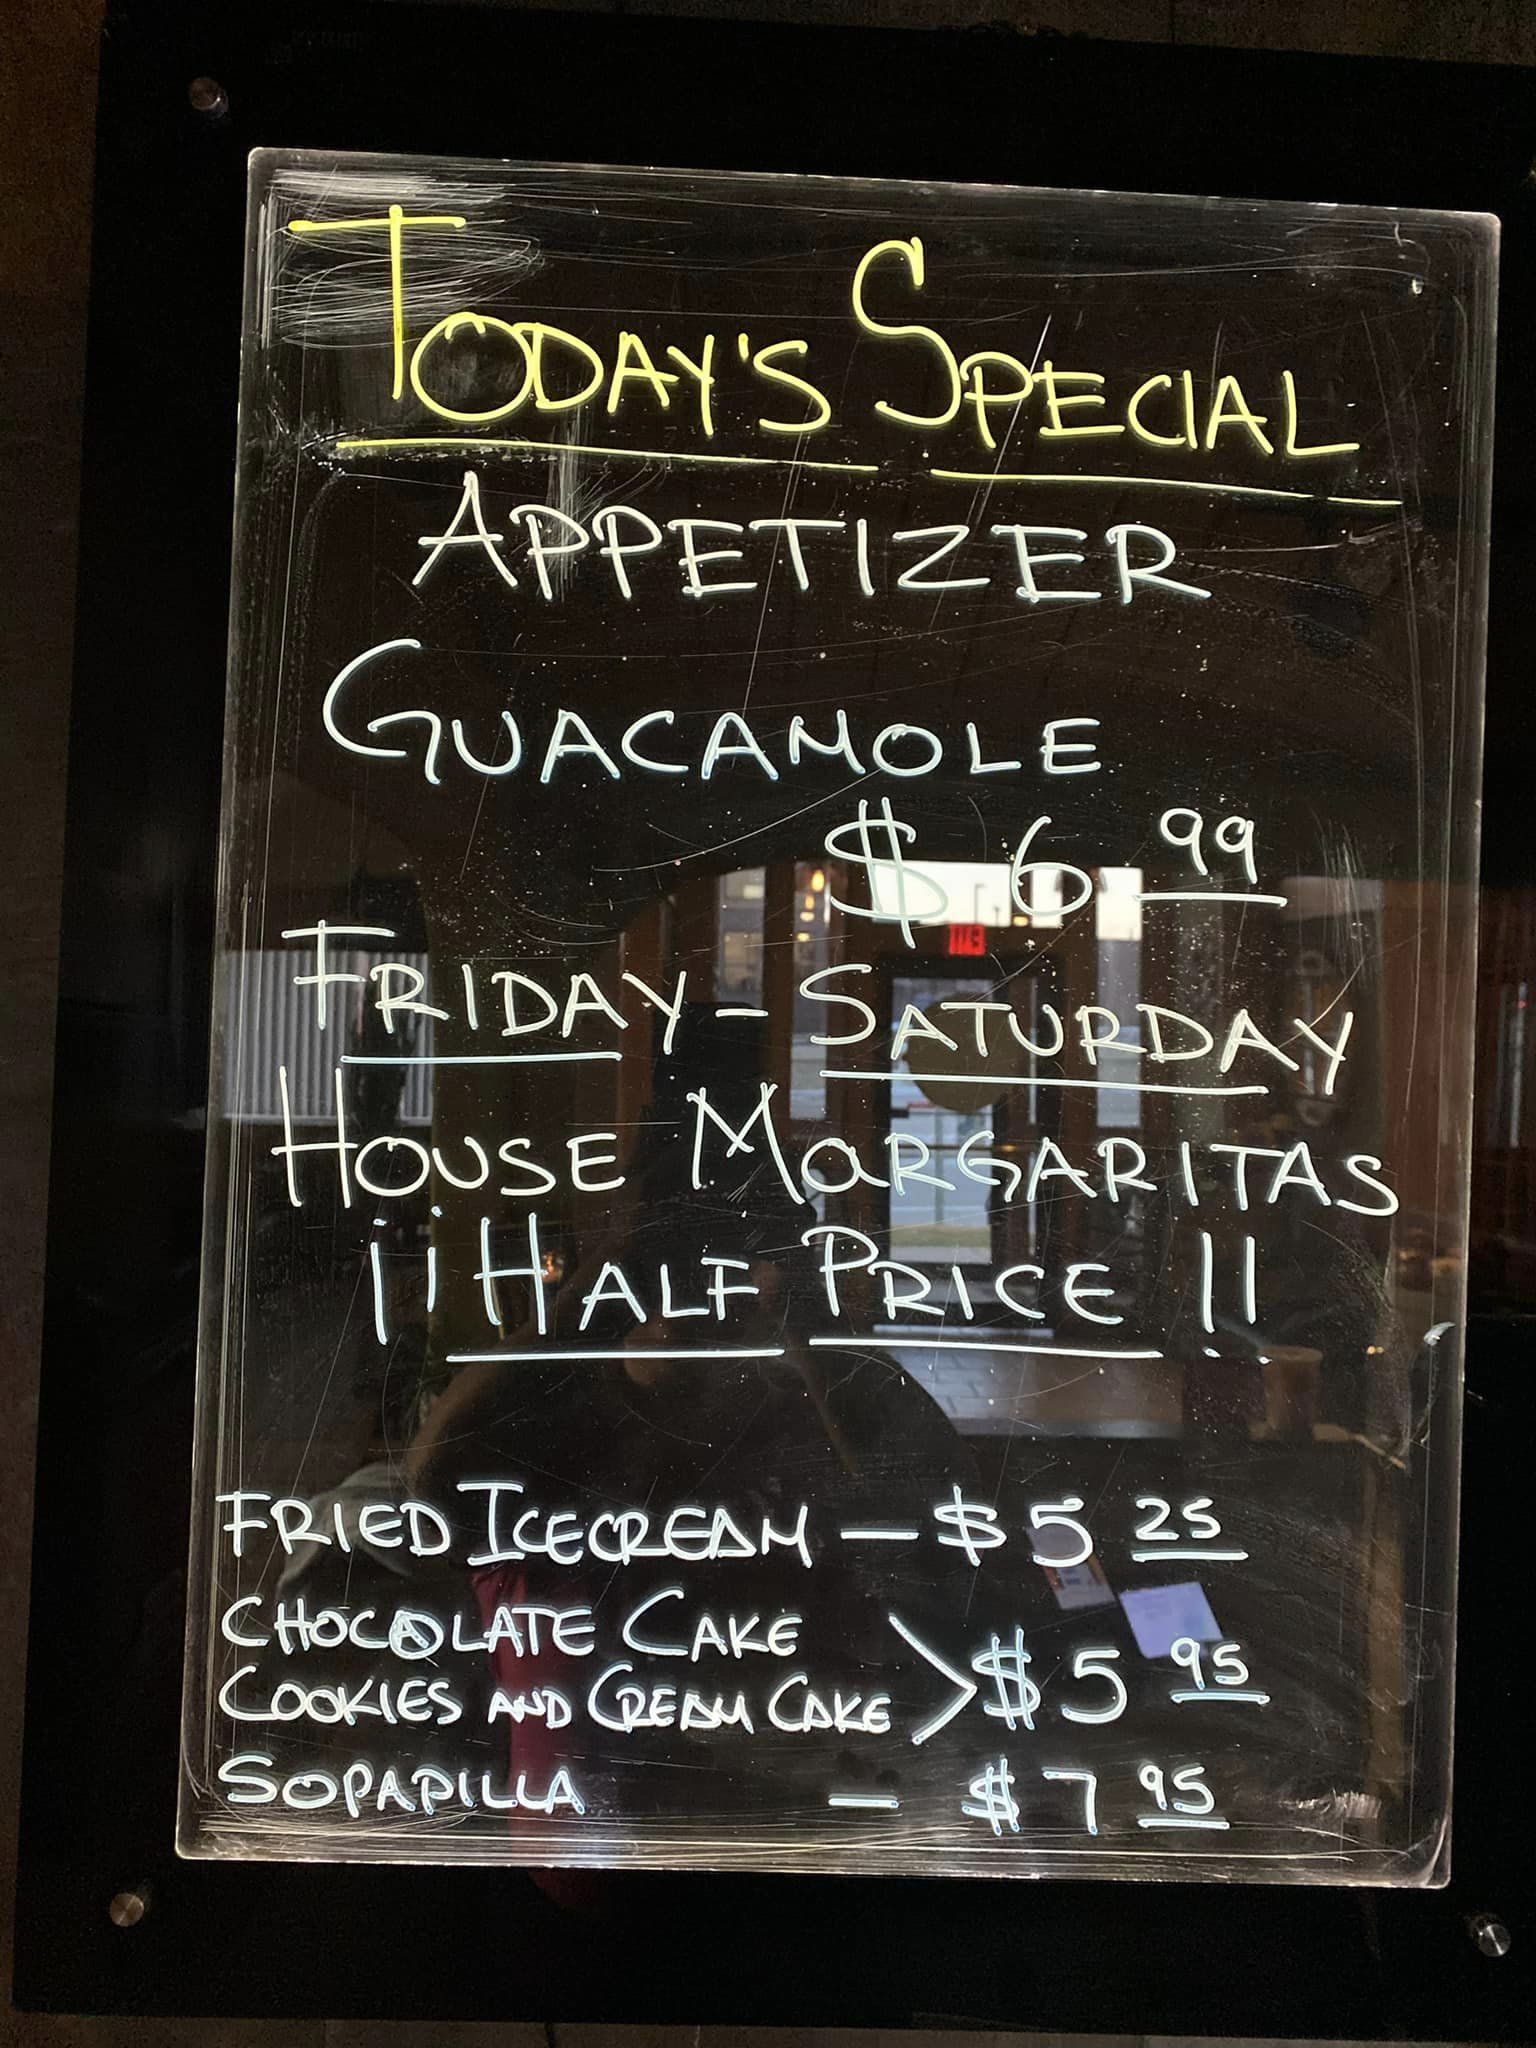 TODAY'S SPECIAL
APPETIZER
GUACAMOLE
$6.99
FRIDAY - SATURDAY
HOUSE MARGARITAS
¡¡HALF PRICE!!
FRIED ICECREAM — $5.25
CHOCOLATE CAKE
COOKIES AND CREAM CAKE > $5.95
SOPAPILLA — $7.95
EXIT